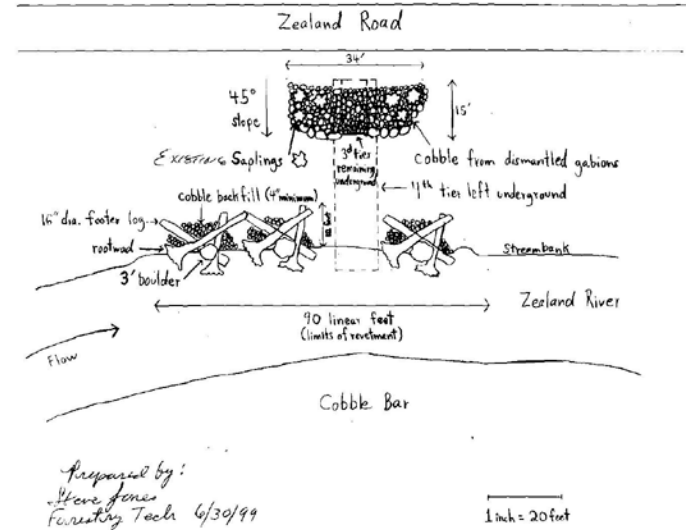 Zealand Road
34'
45°
slope
15'
EXISTING Saplings
3d tier
remaining
underground
cobble from dismantled gabions
4th tier left underground
cobble backfill (4" minimum)
16" dia. footer log
rootwad
3' boulder
streambank
Zealand River
90 linear feet
(limits of revetment)
Flow
Cobble Bar
Prepared by:
Steve Jones
Forestry Tech 6/30/99
1 inch = 20 feet